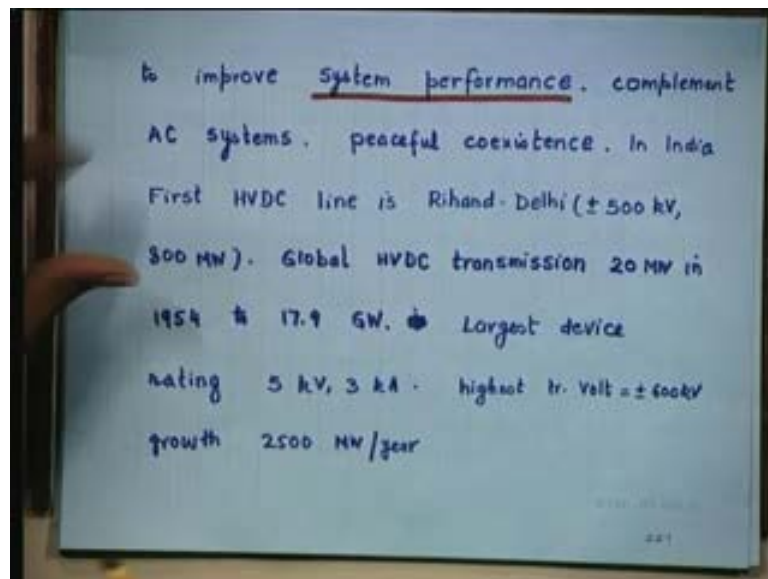 to improve system performance. complement
AC systems. peaceful coexistence. In India
First HVDC line is Rihand-Delhi (± 500 kV,
800 MW). Global HVDC transmission 20 MW in
1954 to 17.9 GW. Largest device
rating 5 kV, 3 kA. highest tr. Volt = ± 600kV
growth 2500 MW/year